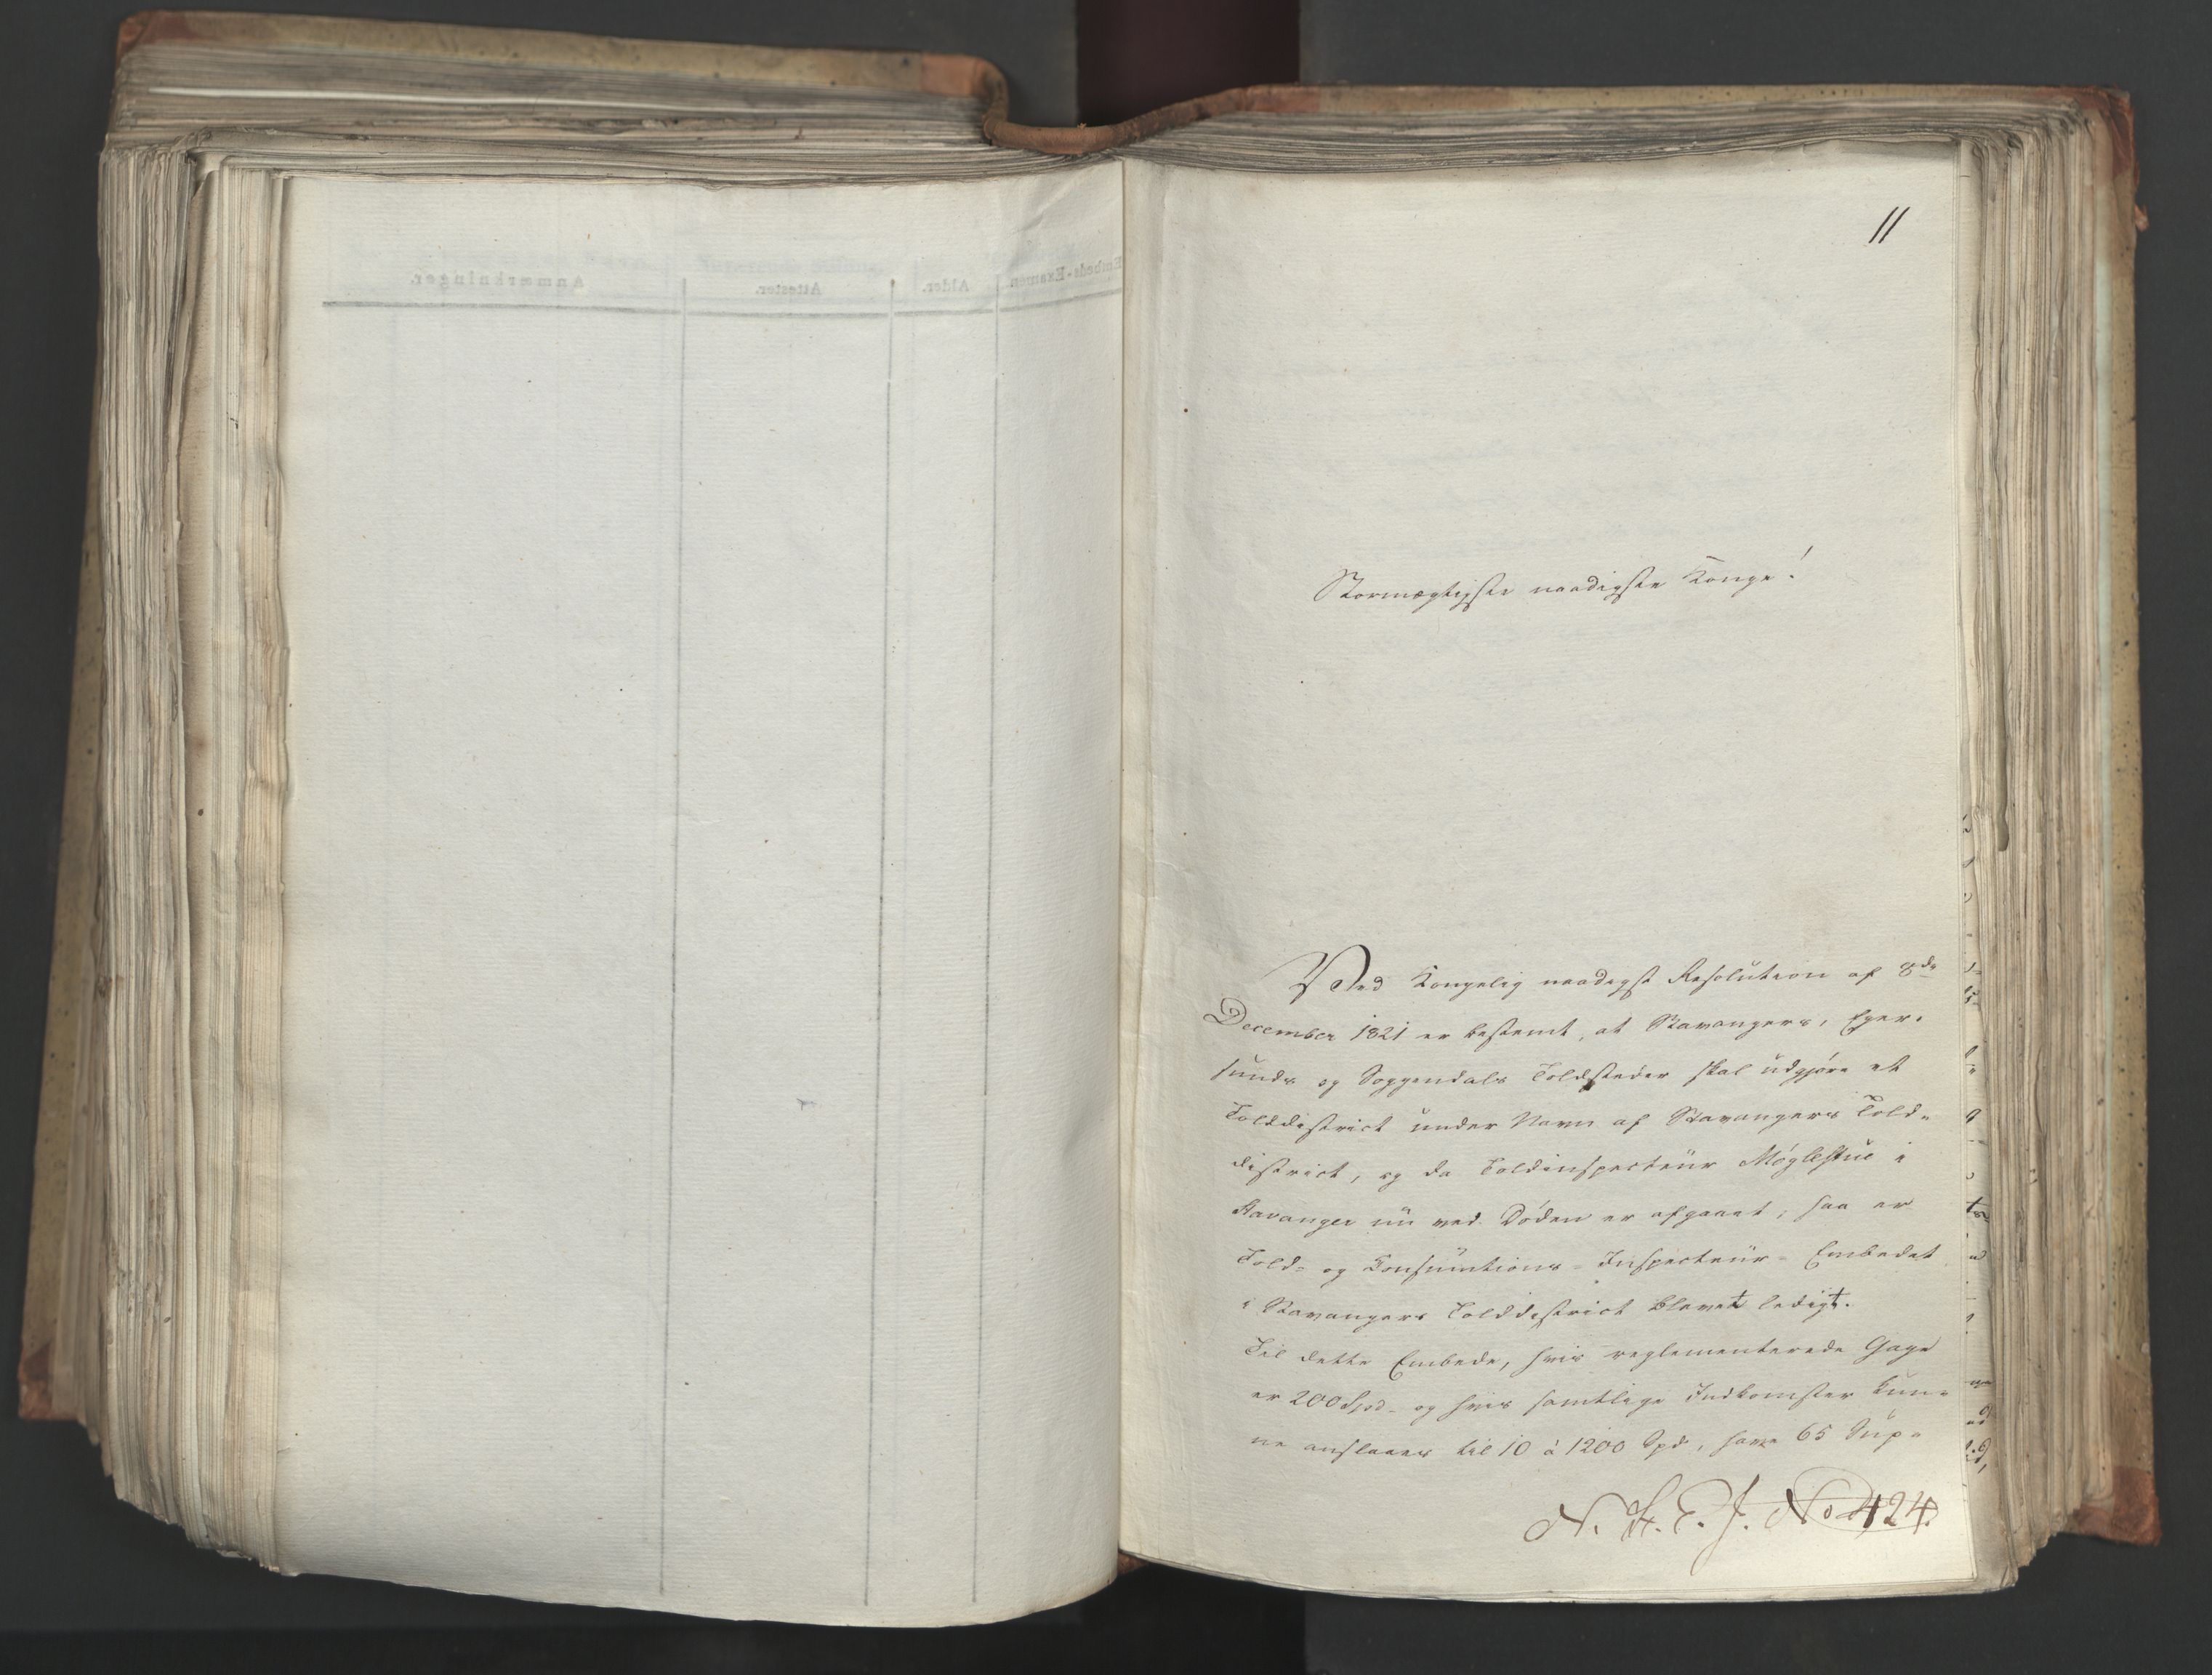 Embeds-Examen.
Alder.
Attester.
Anmærkninger.
11
Stormægtigste naadigste Konge!
Ved Kongelig naadigst Resolution af 8de
December 1821 er bestemt, at Stavangers, Eger-
sunds og Soggendals Toldsteder skal udgjøre et
Tolddistrict under Navn af Stavangers Told-
district, og da Toldinspecteur Møglestue i
Stavanger nu ved Døden er afgaaet, saa er
Told- og Consumtions-Inspecteur-Embedet
i Stavangers Tolddistrict blevet ledigt.
Til dette Embede, hvis reglementerede Gage
er 200 Spd. og hvis samtlige Indkomster kun-
ne anslaaes til 10 à 1200 Spd, have 65 Sup-
N. H. E. J. No 424.